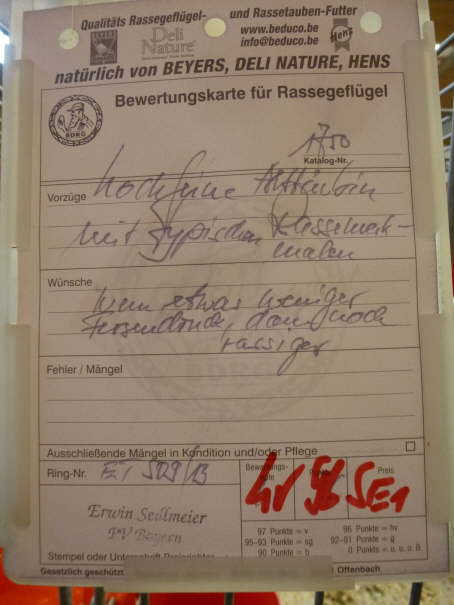 Qualitäts Rassegeflügel- und Rassetauben-Futter
BEYERS
Deli Nature
www.beduco.be
info@beduco.be
Hens
natürlich von BEYERS, DELI NATURE, HENS
Bewertungskarte für Rassegeflügel
BDRG
1750
Katalog-Nr.
Vorzüge hochfeine
mit typischen Rassemerk-
malen
Wünsche
Wenn etwas weniger
dann noch
rassiger
Fehler / Mängel
Ausschließende Mängel in Kondition und/oder Pflege
Ring-Nr. ET 509/13
Preis
hv 96 SE1
Erwin Sedlmeier
PV Bayern
97 Punkte = v 96 Punkte = hv
93-95 Punkte = sg 92-91 Punkte = g
90 Punkte = b 0 Punkte = u. u. o. B
Stempel oder Unterschrift Preisrichter
Gesetzlich geschützt Offenbach